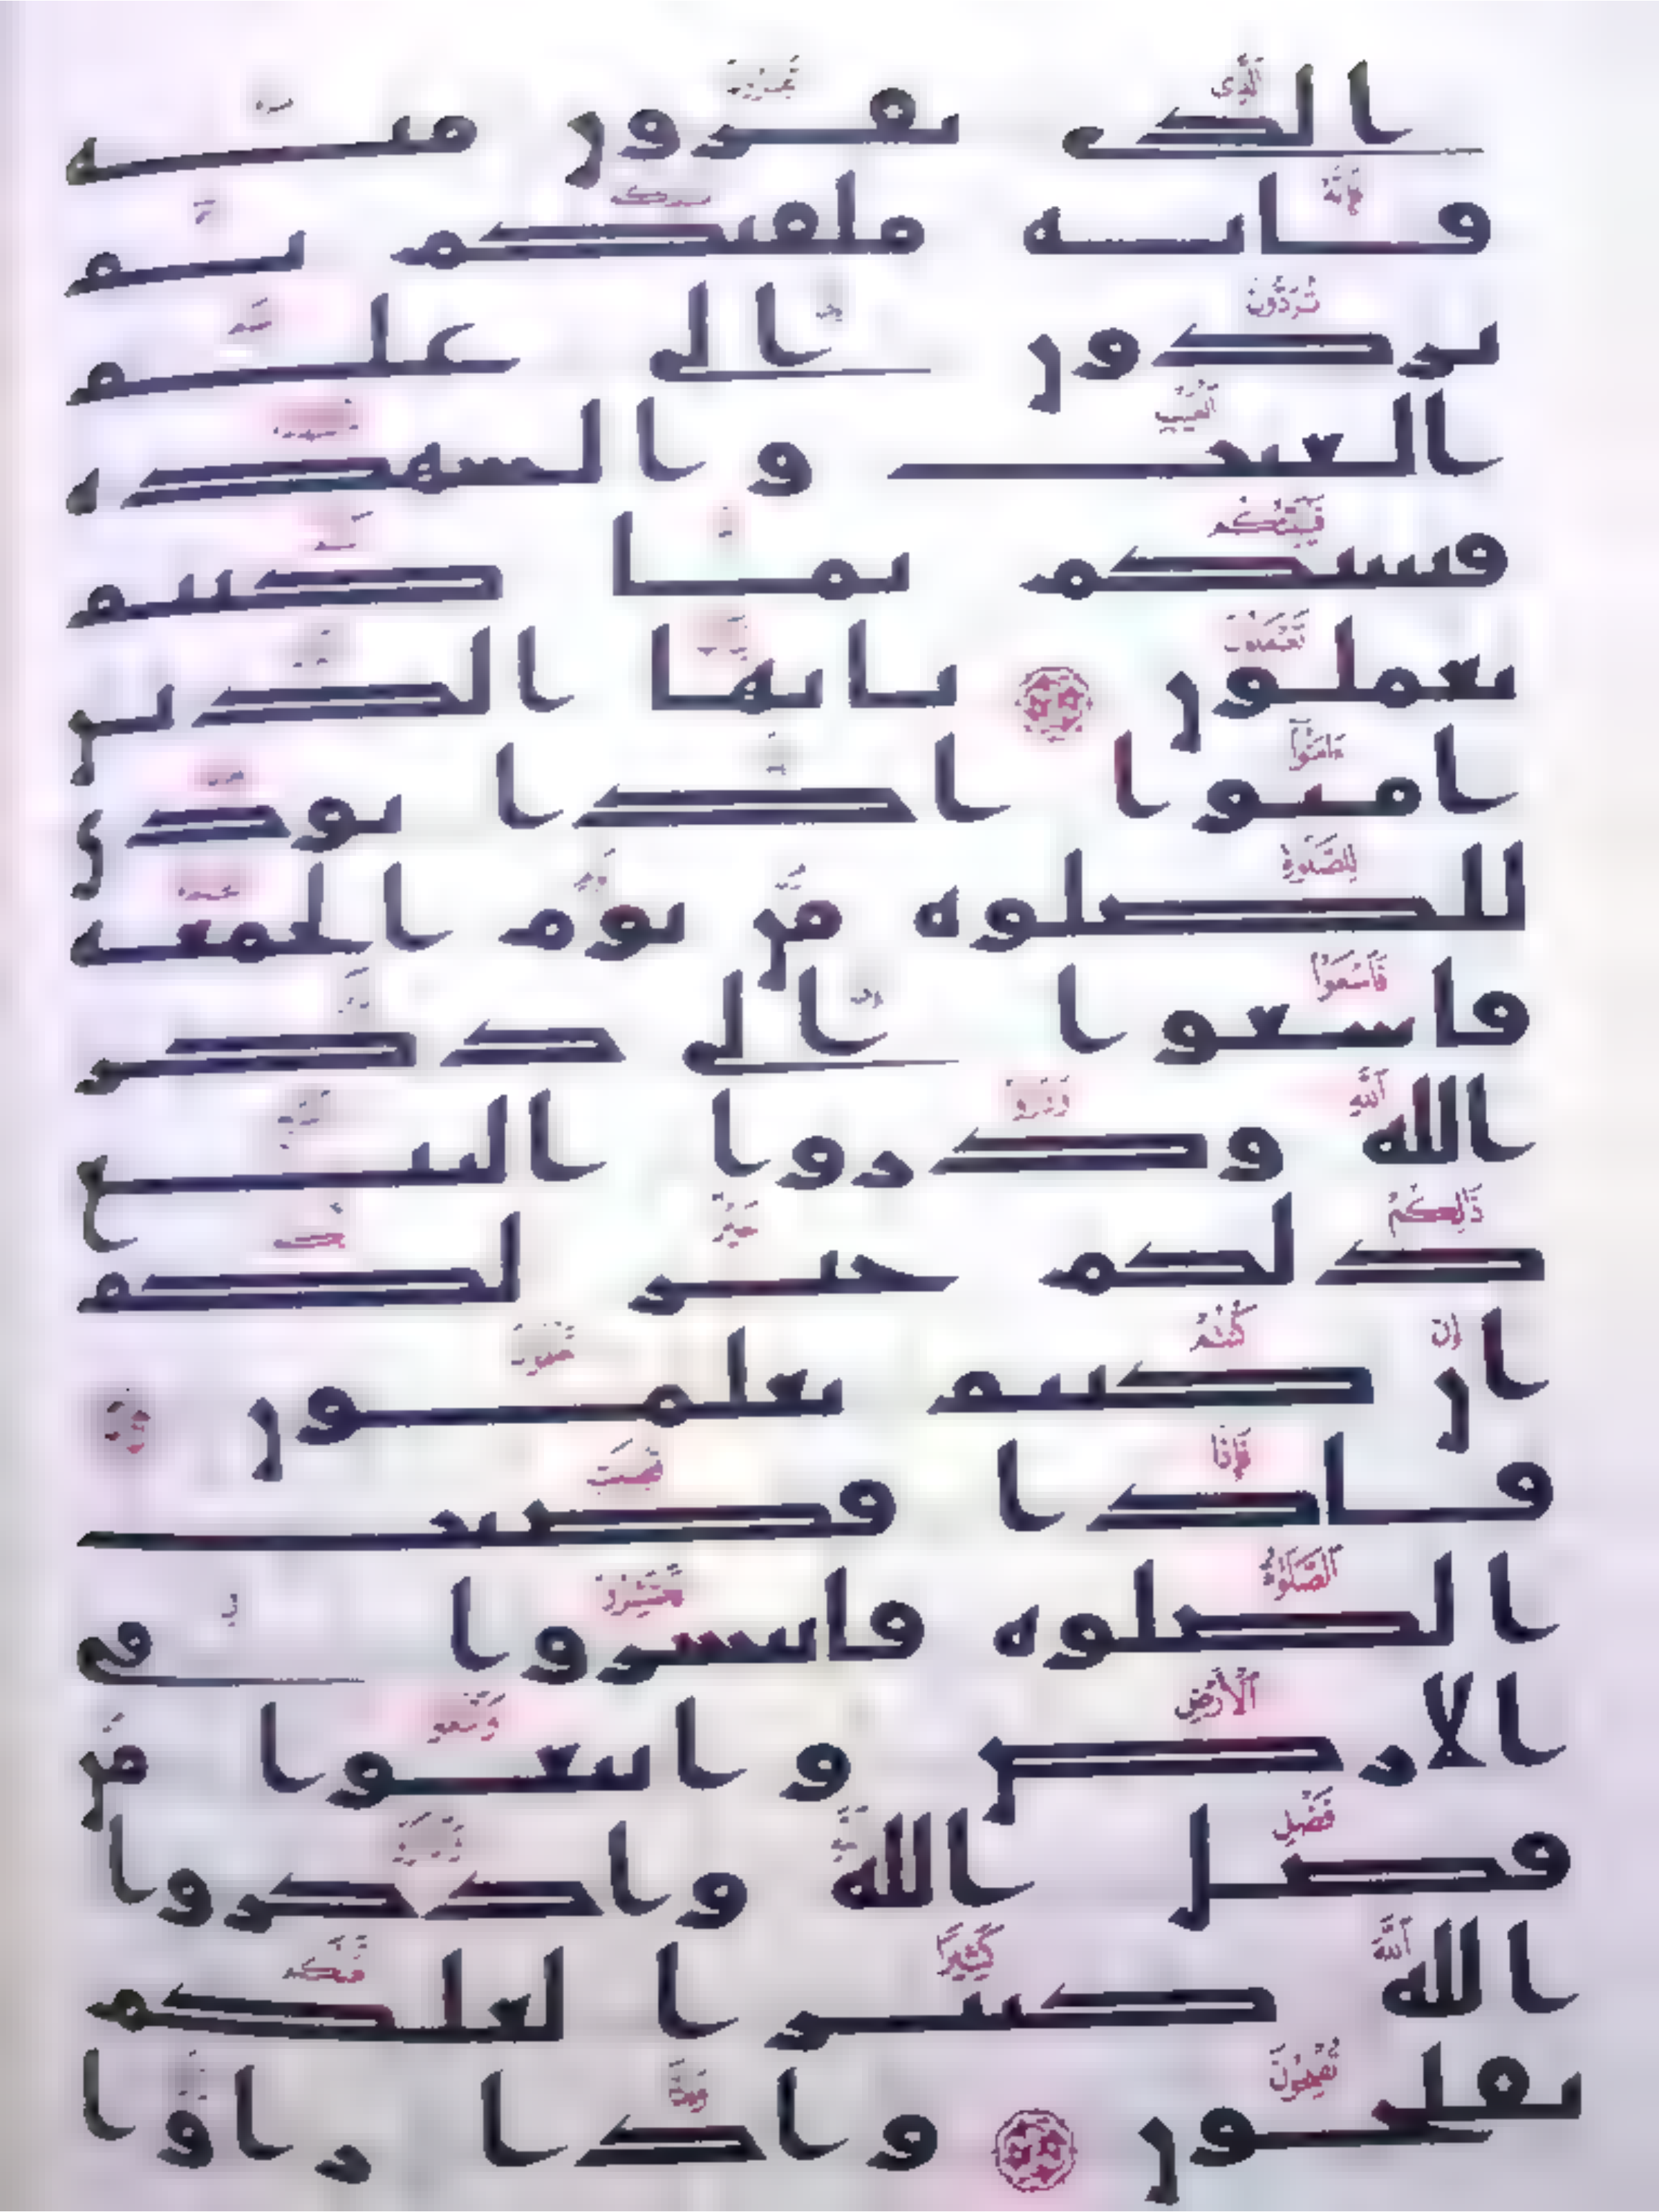 الذي تفرون منه
فانه ملقيكم ثم
تردون الى علم
الغيب والشهدة
فينبئكم بما كنتم
تعملون يايها الذين
امنوا اذا نودي
للصلوة من يوم الجمعة
فاسعوا الى ذكر
الله وذروا البيع
ذلكم خير لكم
ان كنتم تعلمون
فاذا قضيت
الصلوة فانتشروا في
الارض وابتغوا من
فضل الله واذكروا
الله كثيرا لعلكم
تفلحون واذا راوا